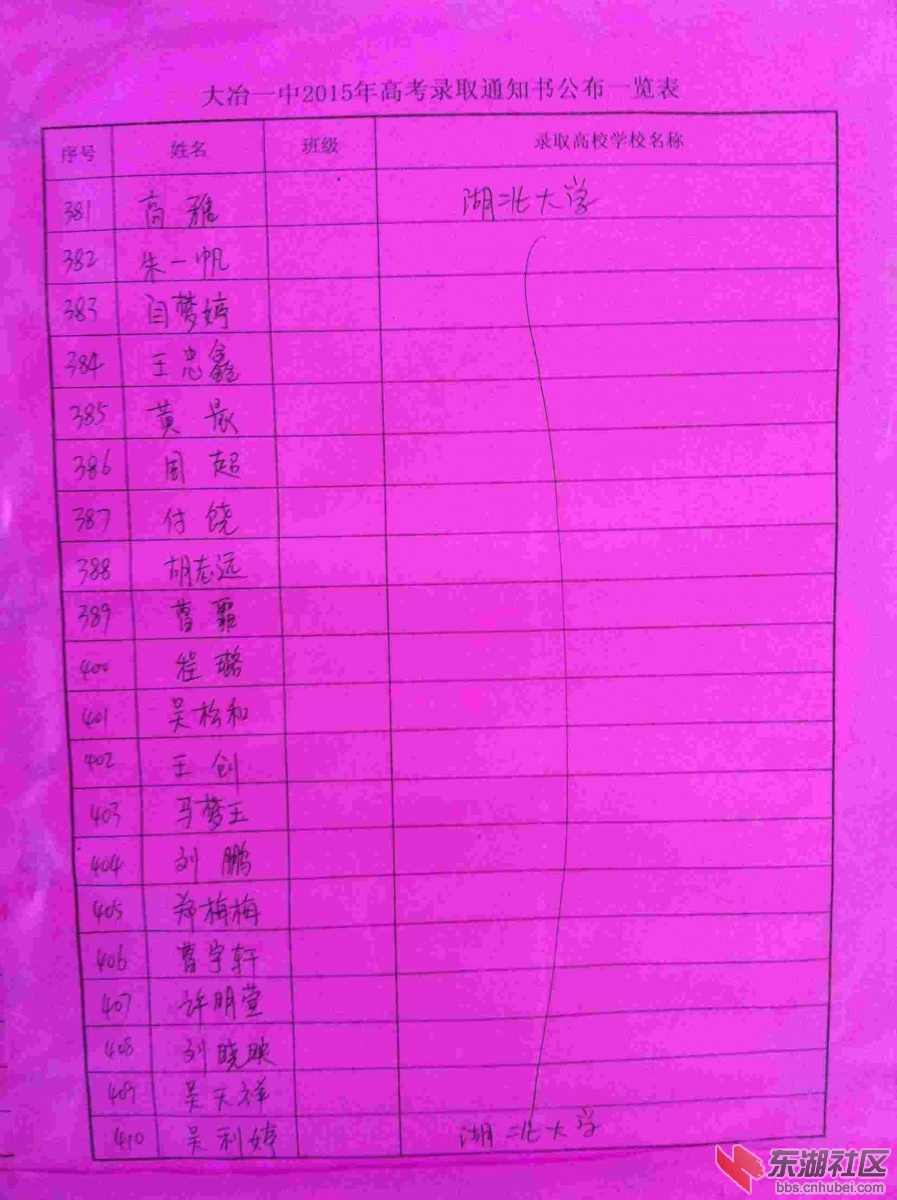 大冶一中2015年高考录取通知书公布一览表
序号 姓名 班级 录取高校学校名称
381 高雅 湖北大学
382 朱一帆
383 闫梦婷
384 王忠鑫
385 黄
386 周超
387 付饶
388 胡志远
389 曹霏
400 程璐
401 吴松和
402 王创
403 马梦玉
404 刘鹏
405 郑梅梅
406 曹宇轩
407 许明萱
408 刘晓映
409 吴天祥
410 吴利婷 湖北大学
东湖社区
bbs.cnhubei.com